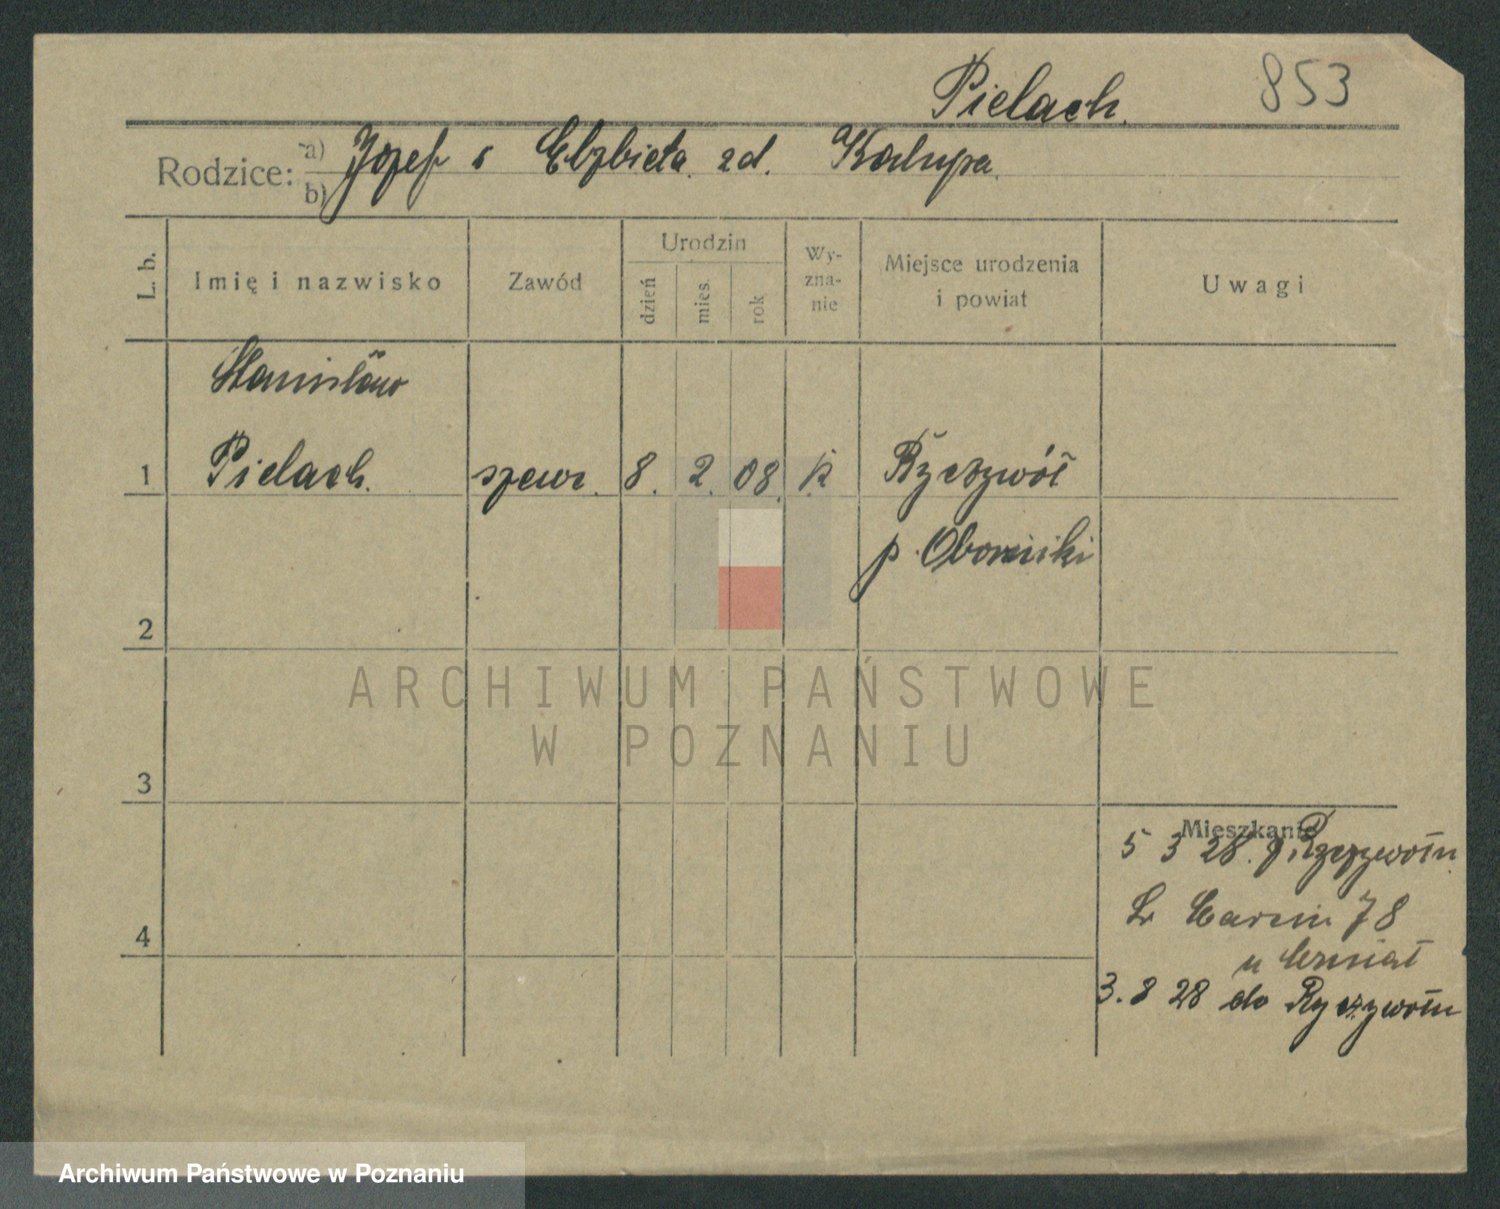 Pielach. 853
Rodzice: a) b) Józef i Elzbieta zd. Kalupa.
L. b. Imię i nazwisko Zawód Urodzin dzień mies. rok Wy-zna-nie Miejsce urodzenia i powiat Uwagi
Stanisław
1 Pielach. szewc. 8. 2. 08. k Ryczywół
p. Oborniki
2
ARCHIWUM PAŃSTWOWE
W POZNANIU
3
Mieszkanie
5 3 28. z Ryczywołu
78
4
3. 8 28 do Ryczywołu
Archiwum Państwowe w Poznaniu